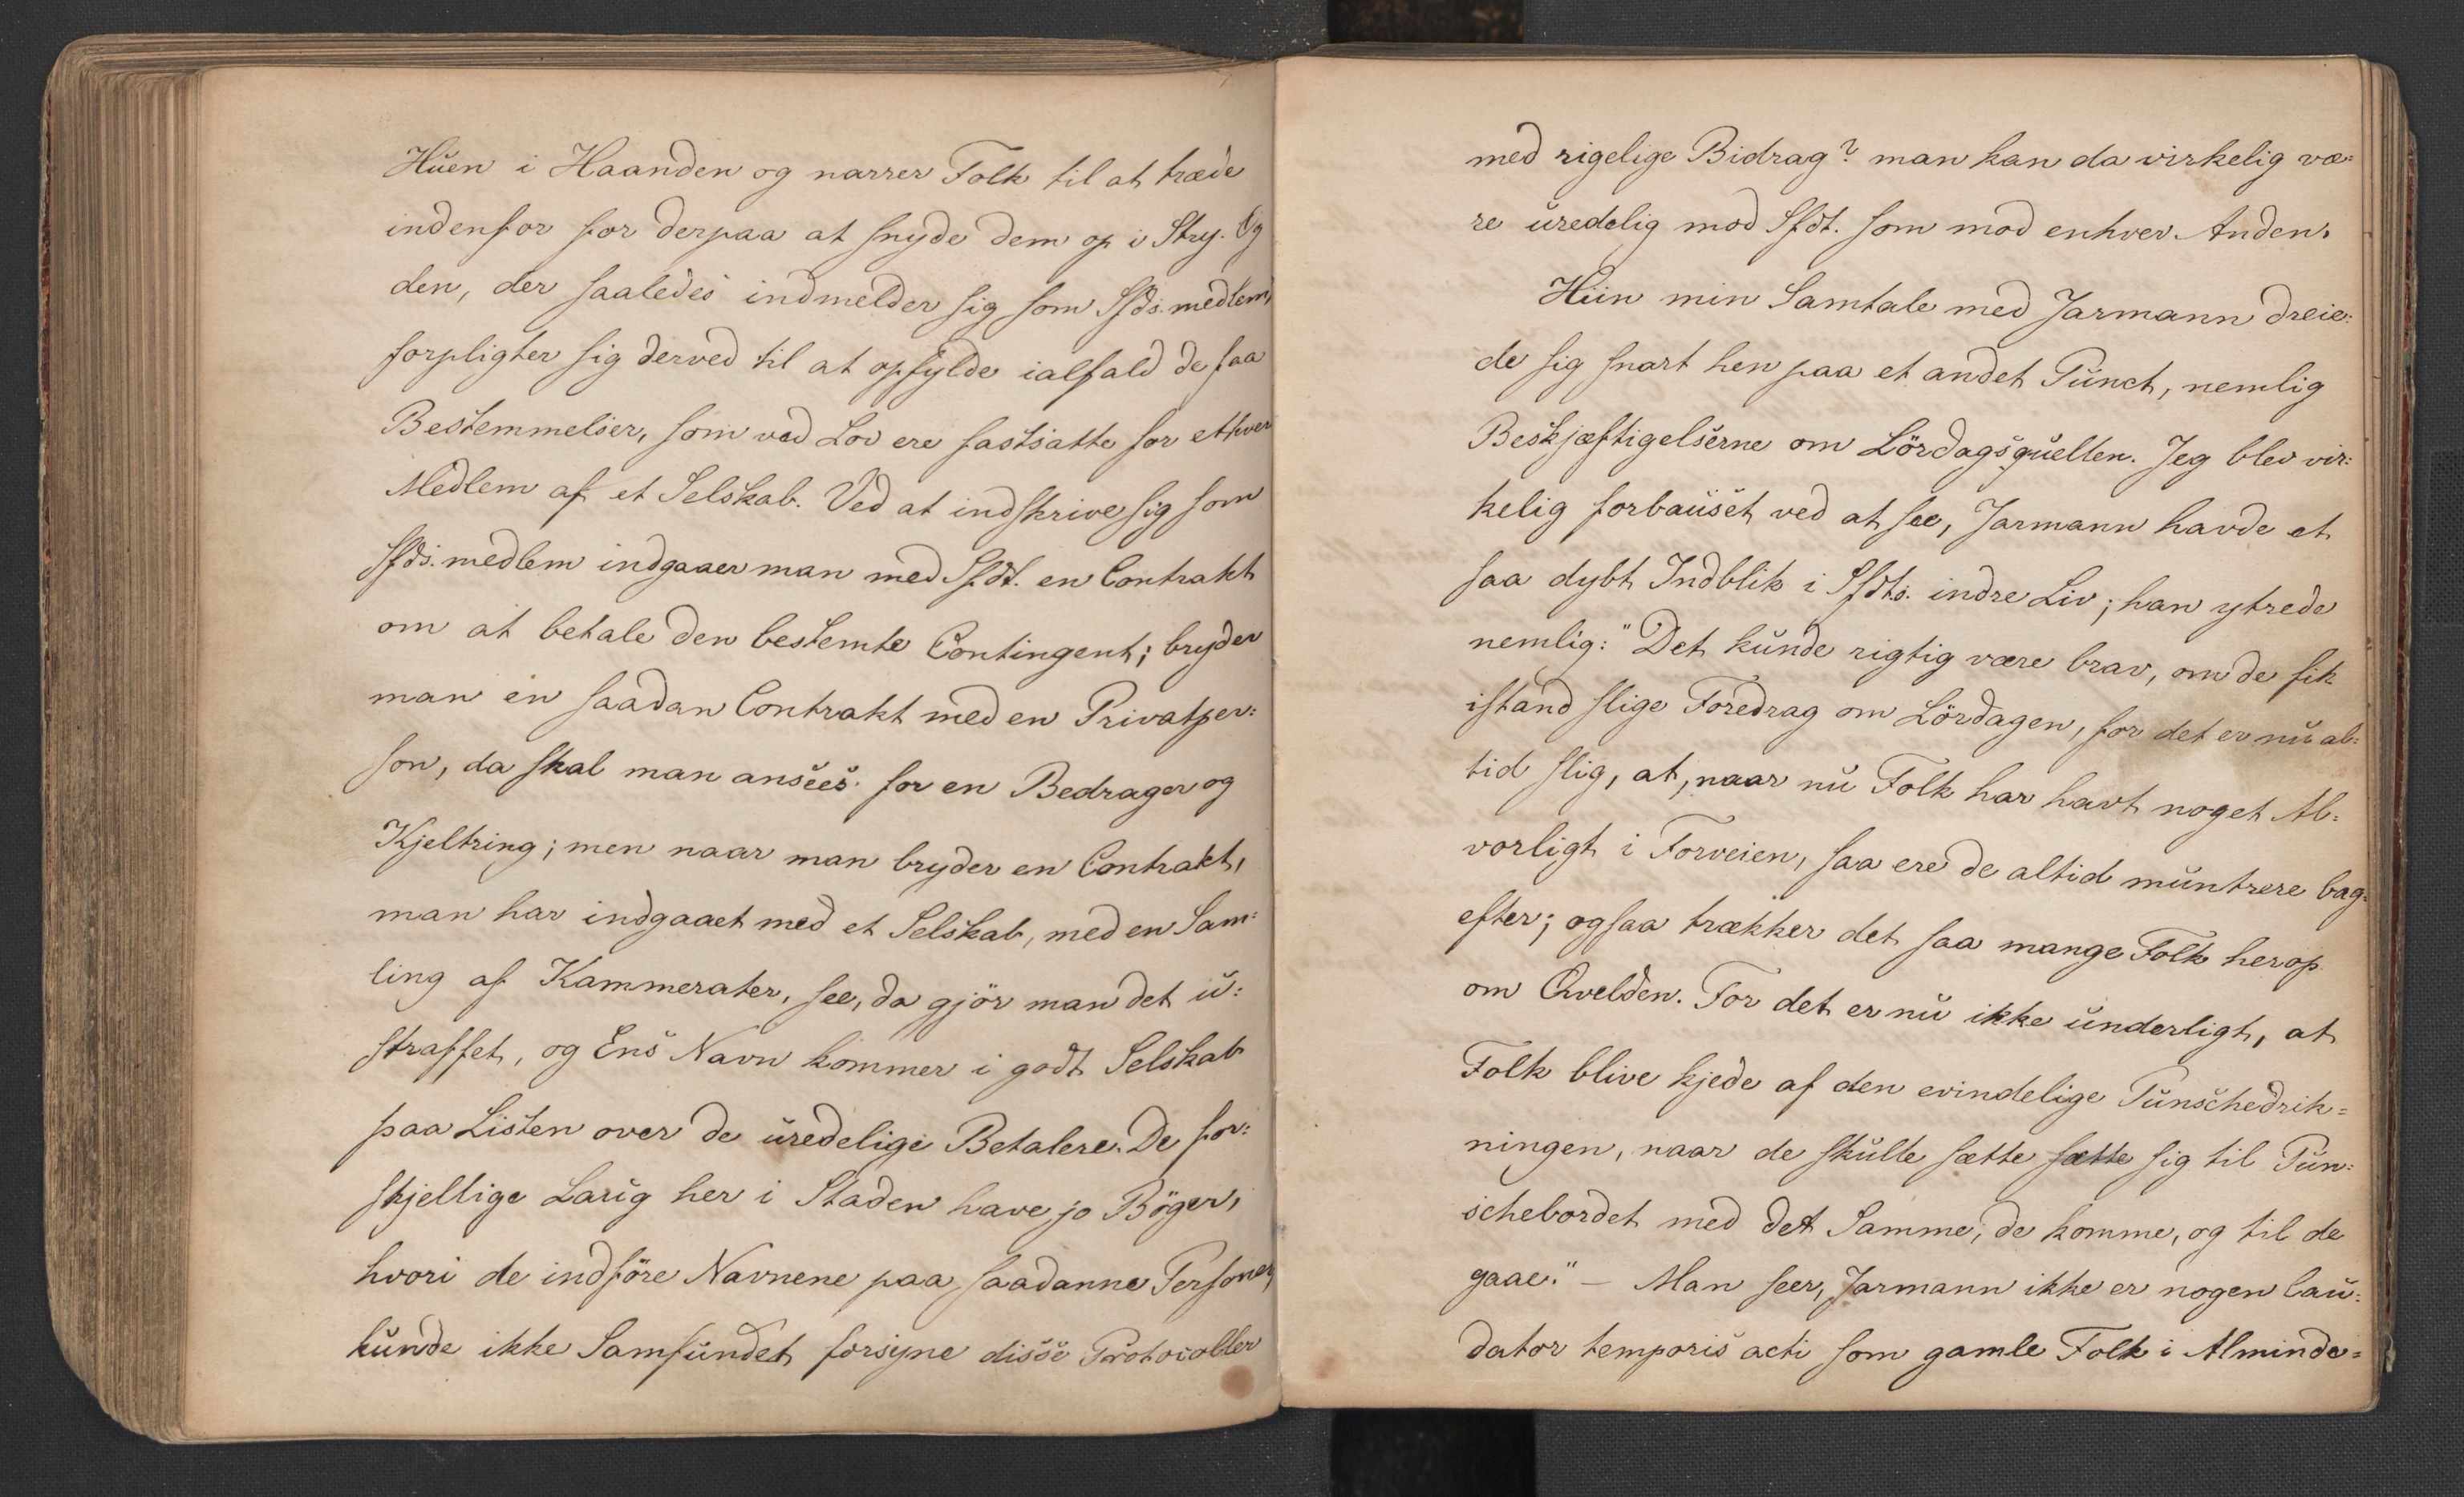 Huen i Haanden og narrer Folk til at træde
indenfor for derpaa at snyde dem op i Stry. Og
den, der saaledes indmelder sig som Sfds. medlem,
forpligter sig derved til at opfylde ialfald de faa
Bestemmelser, som ved Lov ere fastsatte for ethvert
Medlem af et Selskab. Ved at indskrive sig som
Sfds. medlem indgaaer man med Sfdt. en Contrakt
om at betale den bestemte Contingent; bryder
man en saadan Contrakt med en Privatper:
son, da skal man ansees for en Bedrager og
Kjeltring; men naar man bryder en Contrakt,
man har indgaaet med et Selskab, med en Sam:
ling af Kammerater, see, da gjör man det u:
straffet, og Ens Navn kommer i godt Selskab
paa Listen over de uredelige Betalere. De for:
skjellige Laug her i Staden have jo Böger,
hvori de indföre Navnene paa saadanne Personer,
kunde ikke Samfundet forsyne disse Protocoller
med rigelige Bidrag? man kan da virkelig væ:
re uredelig mod Sfdt. som mod enhver Anden.
Hiin min Samtale med Jarmann dreie:
de sig snart hen paa et andet Punct, nemlig
Beskjæftigelserne om Lördagsquellen. Jeg blev vir:
kelig forbauset ved at see, Jarmann havde et
saa dybt Indblik i Sfdts. indre Liv; han ytrede
nemlig: "Det kunde rigtig være brav, om de fik
istand slige Foredrag om Lördagen, for det er nu al:
tid slig, at, naar nu Folk har havt noget Al:
vorligt i Forveien, saa ere de altid muntrere bag:
efter; ogsaa trækker det saa mange Folk herop
om Qvelden. For det er nu ikke underligt, at
Folk blive kjede af den evindelige Punschedrik=
ningen, naar de skulle sætte sætte sig til Pun:
schebordet med det Samme, de komme, og til de
gaae." – Man seer, Jarmann ikke er nogen lau:
dator temporis acti som gamle Folk i Alminde=